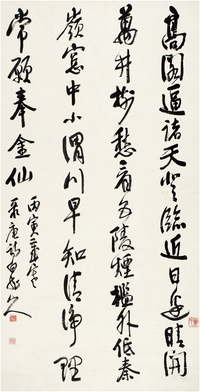 高閣逼諸天登臨近日邊晴開
萬井樹愁看五陵煙檻外低秦
嶺窗中小渭川早知清淨理
常願奉金仙
丙寅
山人